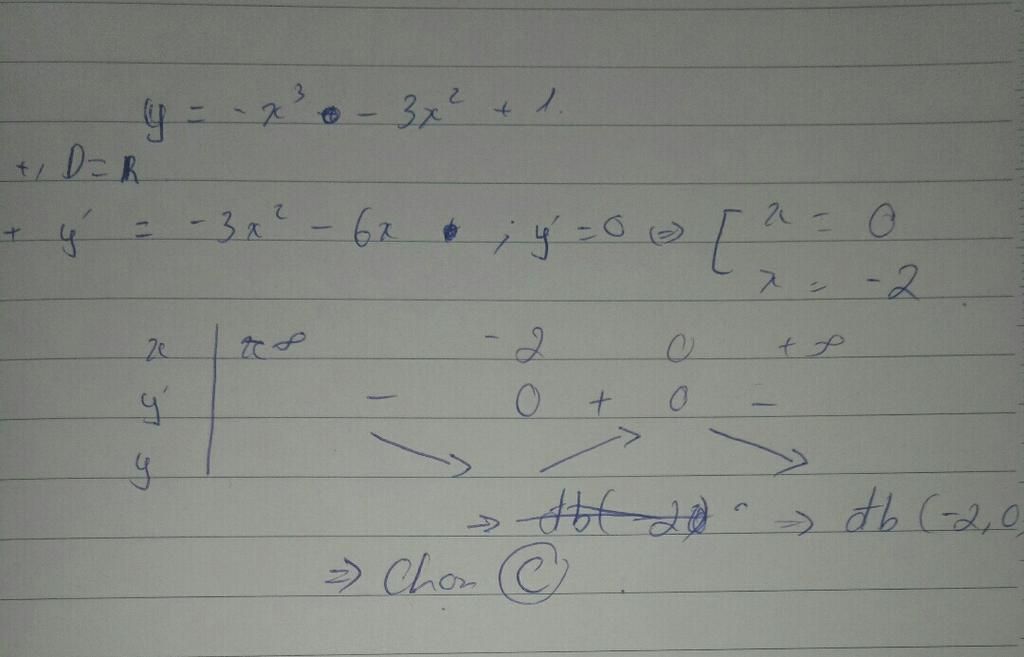 y = -x³ - 3x² + 1.
+, D = R
+ y' = -3x² - 6x ; y' = 0 ⇔ [ x = 0
x = -2
x | -∞ -2 0 +∞
y' | - 0 + 0 -
y | ↘ ↗ ↘
⇒ đb (-2,0
⇒ Chọn C